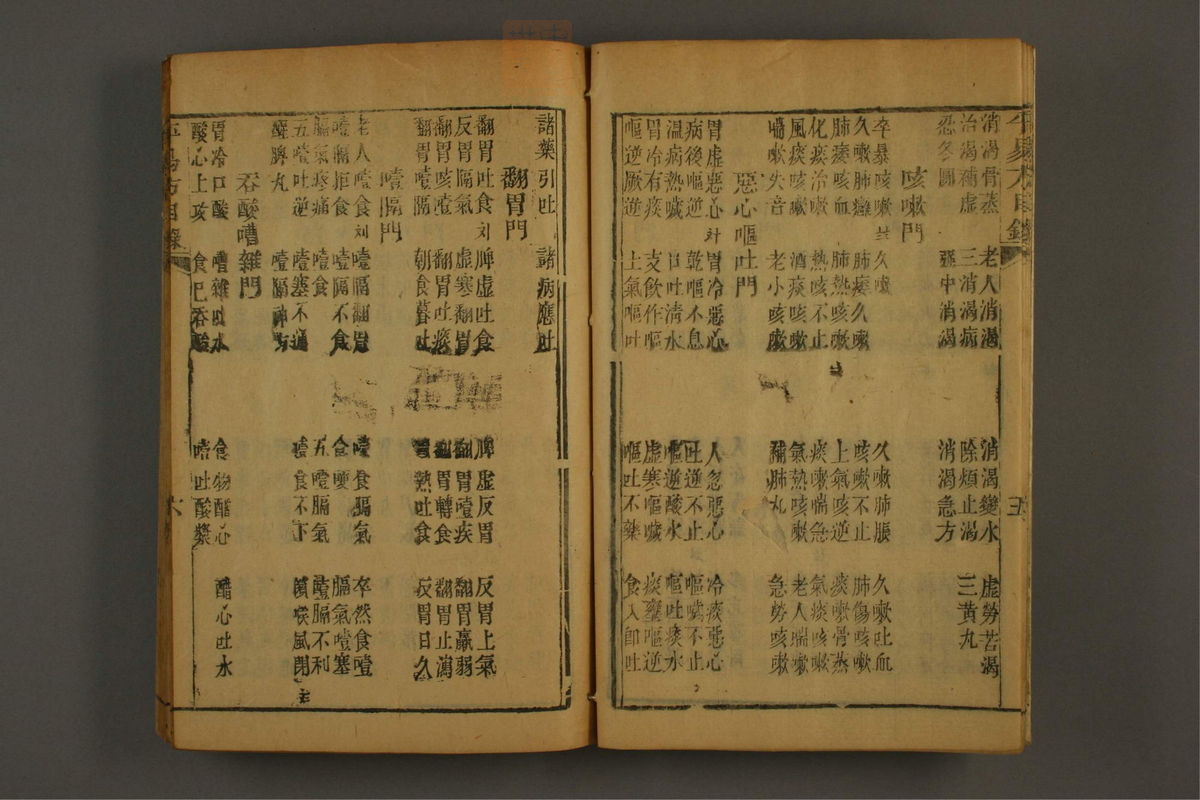 消渴骨蒸 老人消渴 消渴變水 虛勞苦渴
治渴補虛 三消渴病 除煩止渴 三黃丸
忍冬圓 消中消渴 消渴急方
咳嗽門
卒暴咳嗽 久嗽 久嗽肺脹 久嗽吐血
久嗽肺癰 肺痿久嗽 咳嗽不止 肺傷咳嗽
肺痿咳血 肺熱咳嗽 上氣咳逆 痰嗽骨蒸
化痰治嗽 熱咳不止 痰嗽喘急 氣痰咳嗽
風痰咳嗽 酒痰咳嗽 氣熱咳嗽 老人喘嗽
喘嗽失音 老小咳嗽 補肺丸 急勞咳嗽
惡心嘔吐門
胃虛惡心 胃冷惡心 人忽惡心 冷痰惡心
病後嘔逆 乾嘔不息 吐逆不止 嘔噦不止
溫病熱噦 口吐清水 嘔逆酸水 嘔吐痰水
胃冷有痰 支飲作嘔 虛寒嘔噦 痰壅嘔逆
嘔逆厥逆 上氣嘔吐 嘔吐不藥 食入即吐
諸藥引吐 諸病應吐
翻胃門
翻胃吐食 脾虛吐食 脾虛反胃 反胃上氣
反胃隔氣 虛寒翻胃 翻胃噎疾 翻胃羸弱
翻胃咳噎 翻胃吐痰 翻胃轉食 翻胃止瀉
翻胃噎隔 朝食暮吐 胃熱吐食 反胃日久
噎隔門
老人噎食 噎隔翻胃 噎食膈氣 卒然食噎
噎膈拒食 噎隔不食 食噎 膈氣噎塞
膈氣疼痛 噎食 五噎膈氣 噎膈不利
五噎吐逆 噎塞不通 噎食不下 喉風閉
醒脾丸 噎隔神方
吞酸嘈雜門
胃冷口酸 嘈雜吐水 食物醋心 醋心吐水
酸心上攻 食已吞酸 噎吐酸漿